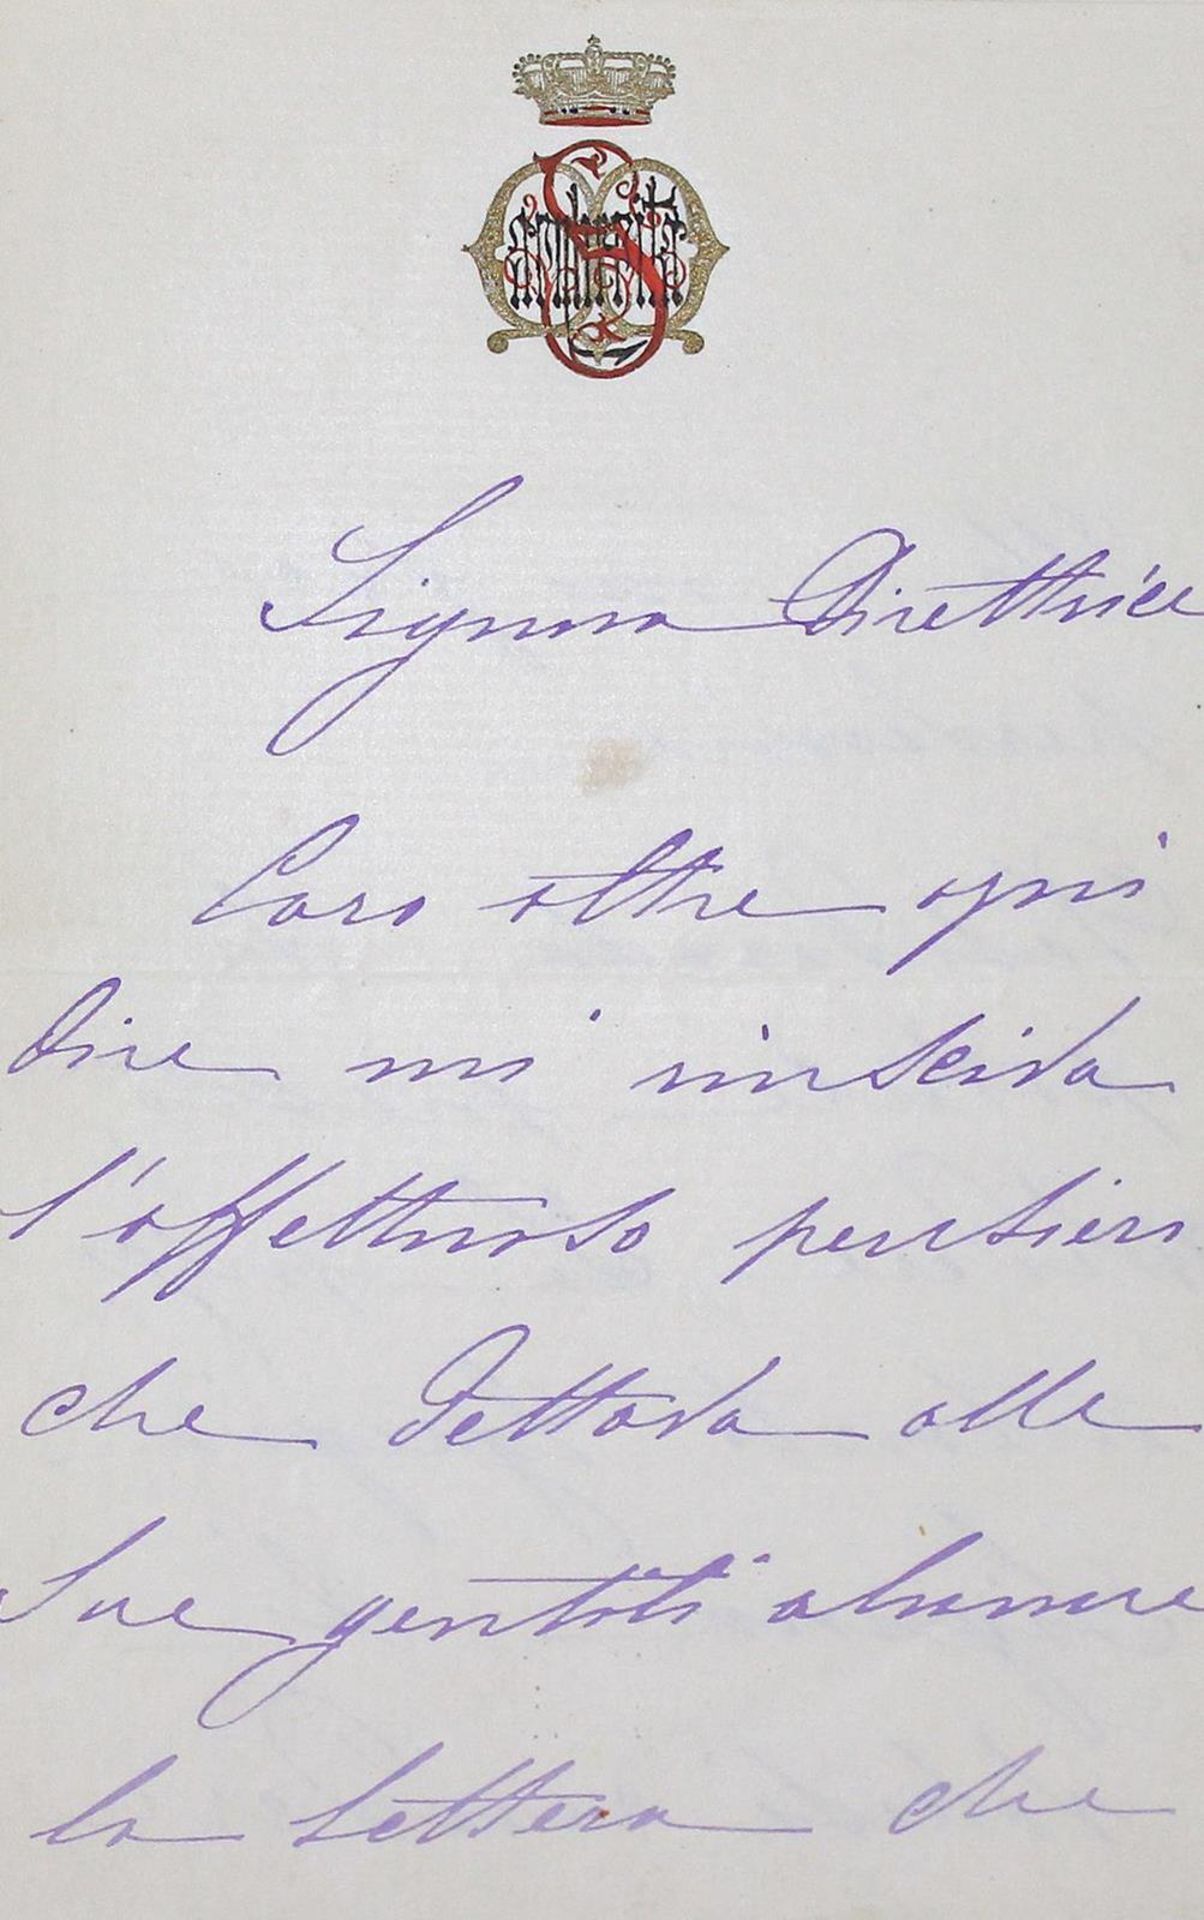 Signora Direttrice
Caro oltre ogni
dire mi riuscìva
l'affettuoso pensiero
che dettava alle
Sue gentili alunne
la lettera che